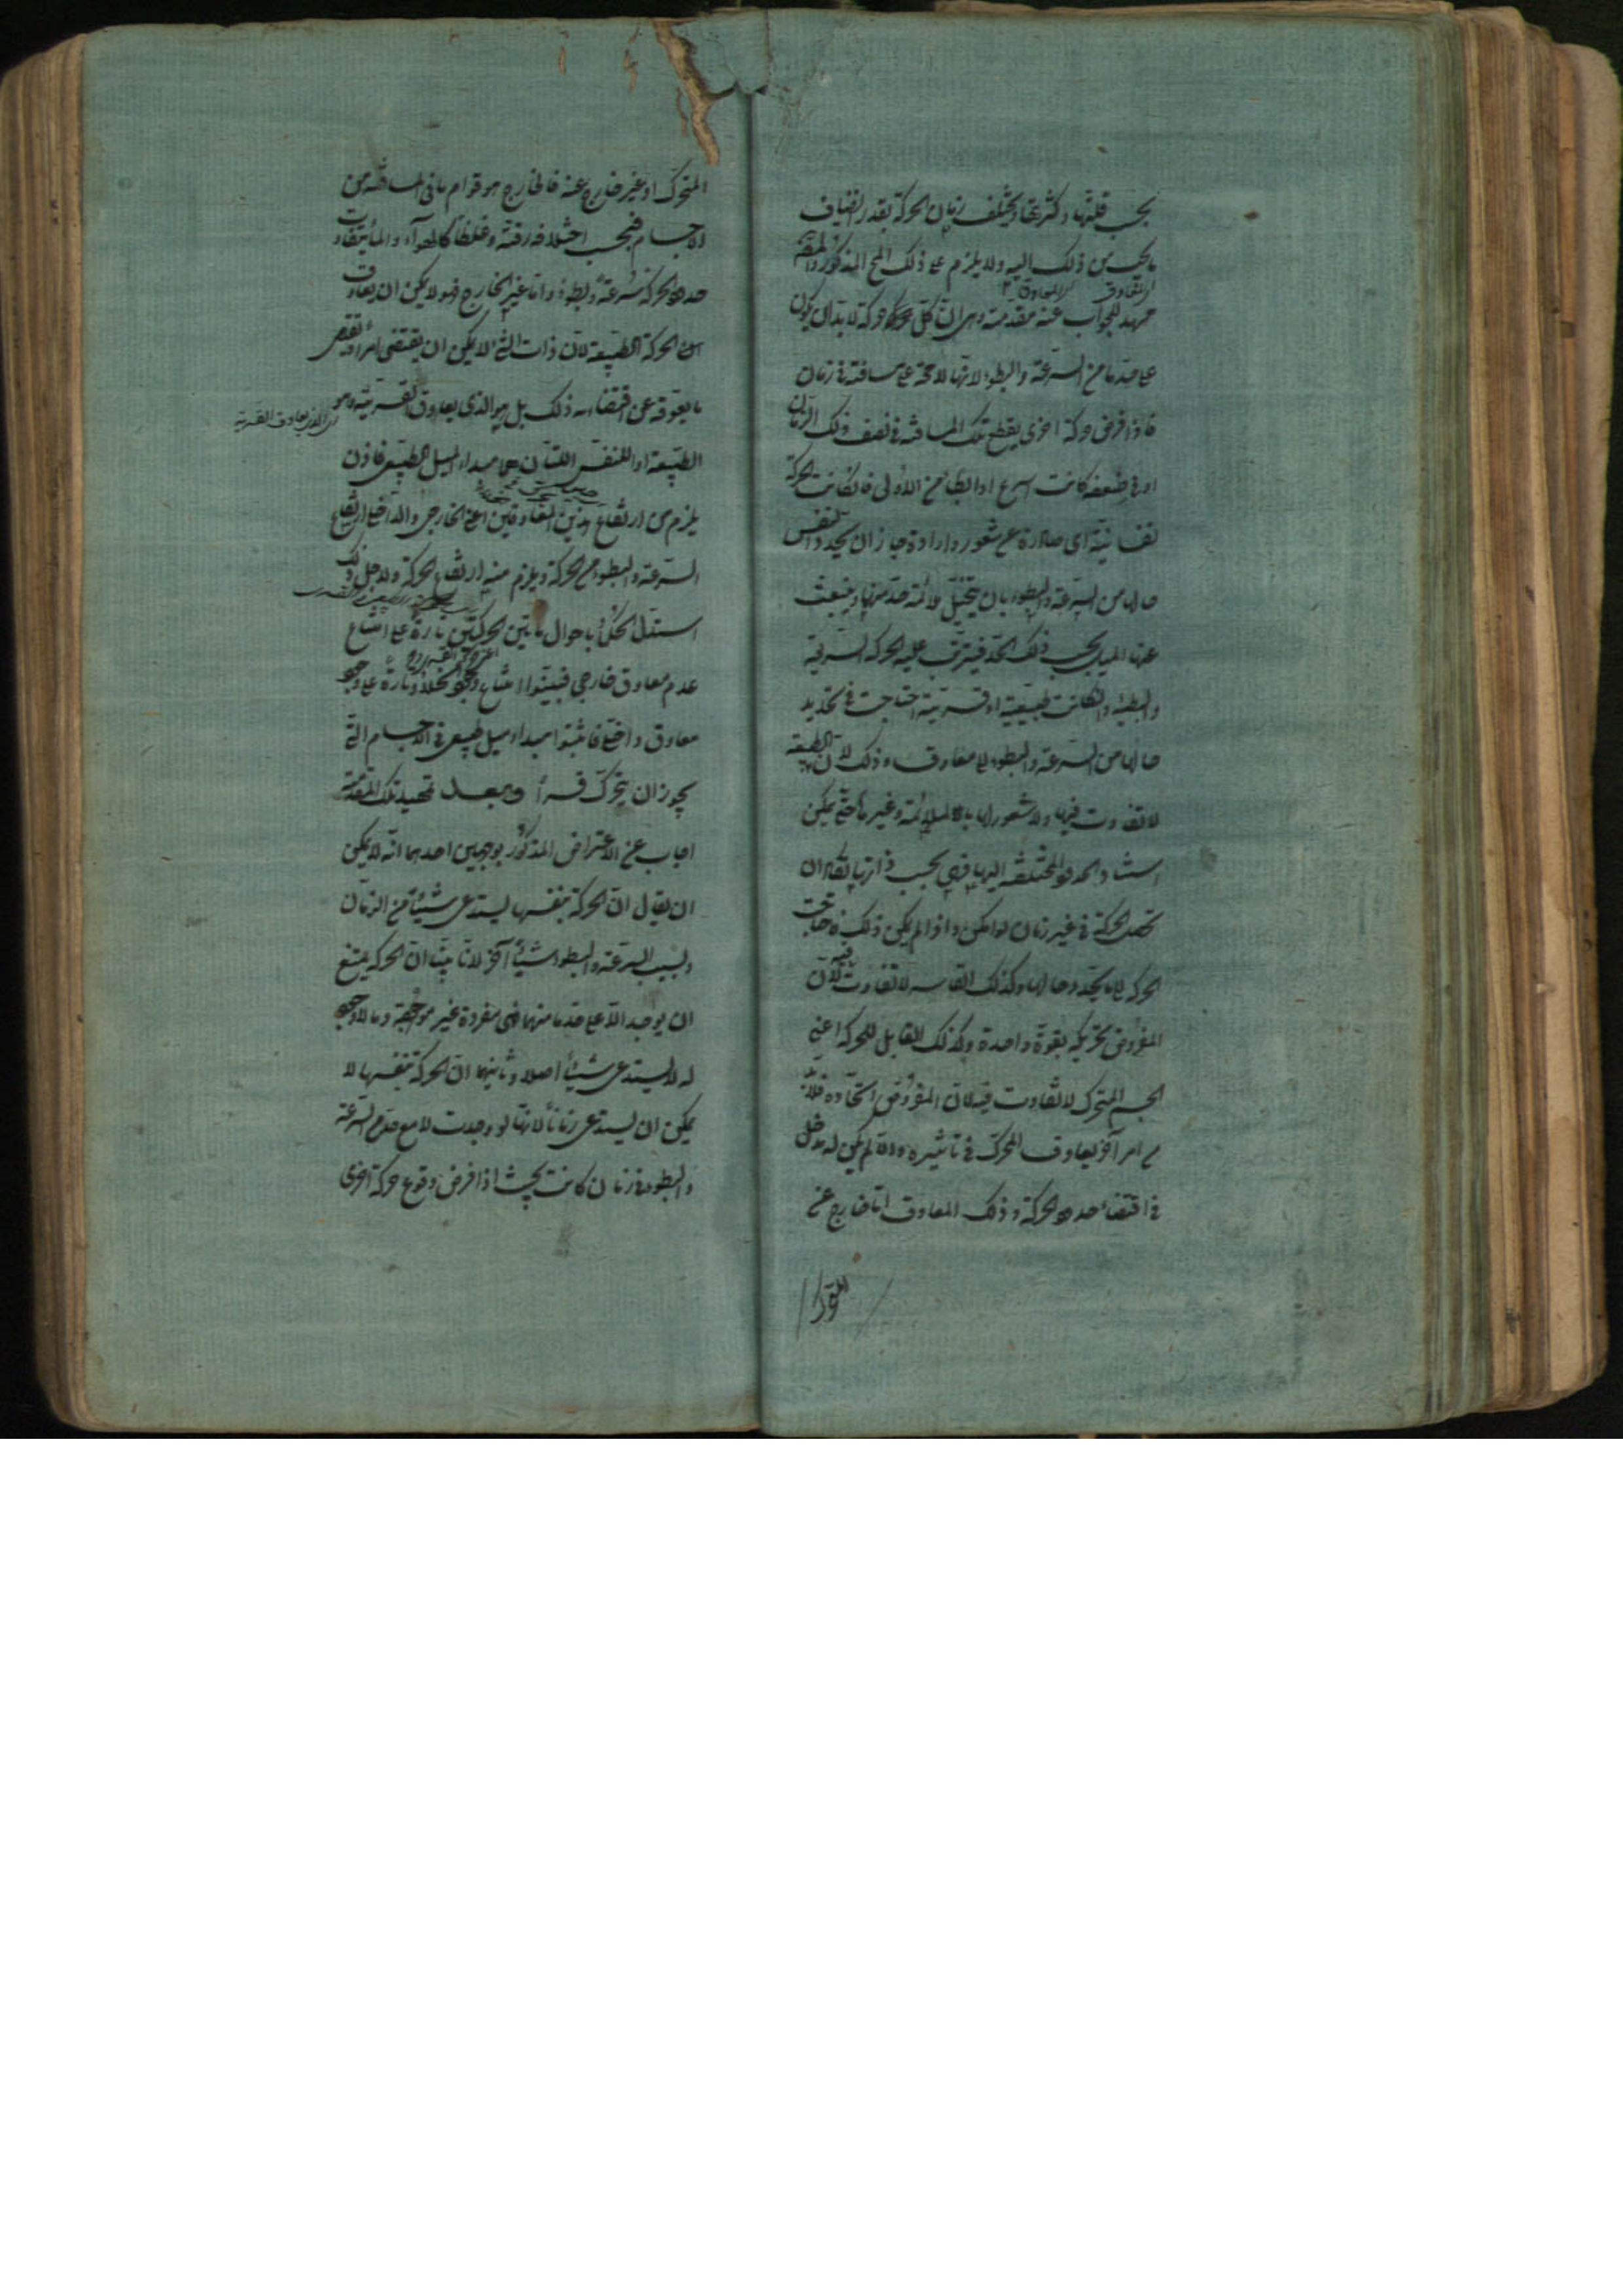 بحسب قلتها وكثرتها ويختلف زمان الحركة بقدر انضياف
ما يجب من ذلك اليه ولا يلزم على ذلك المح المذكور والمص
مهد للجواب عنه مقدمة وهى ان كل حركة لا بد ان يكون
على حد ما من السرعة والبطوء لانها لا محة على مسافة فى زمان
فاذا فرض حركة اخرى يقطع تلك المسافة فى نصف ذلك الزمان
او فى ضعفه كانت اسرع او ابطأ من الاولى فان كانت الحركة
نفسانية اى صادرة عن شعور وارادة جاز ان يحدد النفس
حالها من السرعة والبطوء بان يتخيل ملائمة حد منها وينبعث
عنها الميل بحسب ذلك الحد فيترتب عليه الحركة السريعة
والبطيئة وان كانت طبيعية او قسرية احتاجت فى تحديد
حالها من السرعة والبطوء الى معاوق وذلك لان الطبيعة
لا تفاوت فيها ولا شعور لها بالملائمة وغيرها حتى يمكن
استناد الحدود المختلفة اليها فهى بحسب ذاتها تكاد ان
تحصل الحركة فى غير زمان لو امكن واذا لم يكن ذلك فاحتاجت
الحركة الى ما يحدد حالها وكذلك القاسر لا تفاوت فيه لان
المفروض تحريكه بقوة واحدة وكذلك القابل للحركة اعنى
الجسم المتحرك لا تفاوت فيه لان المفروض اتحاده فلا بد
من امر آخر يعاوق المحرك فى تأثيره والا لم يكن له مدخل
فى اقتضاء حدود الحركة وذلك المعاوق اما خارج عن
المتحرك او غير خارج عنه فالخارج هو قوام ما فى المسافة من
الاجسام فبحسب اختلافه رقة وغلظا كالهواء والماء يتفاوت
حدود الحركة سرعة وبطوء واما غير الخارج فهو لا يمكن ان يعاوق
الحركة الطبيعة لان ذات الشئ لا يمكن ان يقتضى امرا ويقتضى
ما يعوقه عن اقتضائه ذلك بل هو الذى يعاوق القسرية وهو
اى الذى يعاوق القسرية
الطبيعة او النفس اللتان هما مبداء الميل الطبيعى فاذن
يلزم من ارتفاع هذين المعاوقين اعنى الخارجى والداخلى ارتفاع
السرعة والبطوء من الحركة ويلزم منه ارتفاع الحركة ولاجل ذلك
استدل الحكماء باحوال هاتين الحركتين تارة على امتناع
عدم معاوق خارجى فبينوا امتناع وجود الخلاء وتارة على وجوب
معاوق داخلى فاثبتوا مبداء ميل طبيعى فى الاجسام التى
يجوز ان يتحرك قسرا وبعد تمهيد تلك المقدمة
اجاب عن الاعتراض المذكور بوجهين احدهما انه لا يمكن
ان يقال ان الحركة بنفسها يستدعى شيئا من الزمان
وبسبب السرعة والبطوء شيئا آخر لانا بينا ان الحركة يمتنع
ان يوجد الا على حد ما منهما فهى مفردة غير موجودة وما لا وجود
له لا يستدعى شيئا اصلا وثانيهما ان الحركة بنفسها لا
يمكن ان يستدعى زمانا لانها لو وجدت لا مع حد من السرعة
والبطوء فى زمان كانت بحيث اذا فرض وقوع حركة اخرى